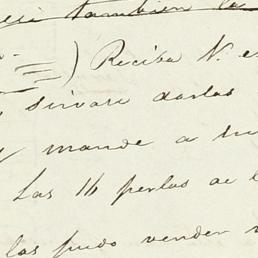 tambien la
) Reciba V. es
sirvase darlas
y mande a su
Las 16 perlas de l
las pudo vender